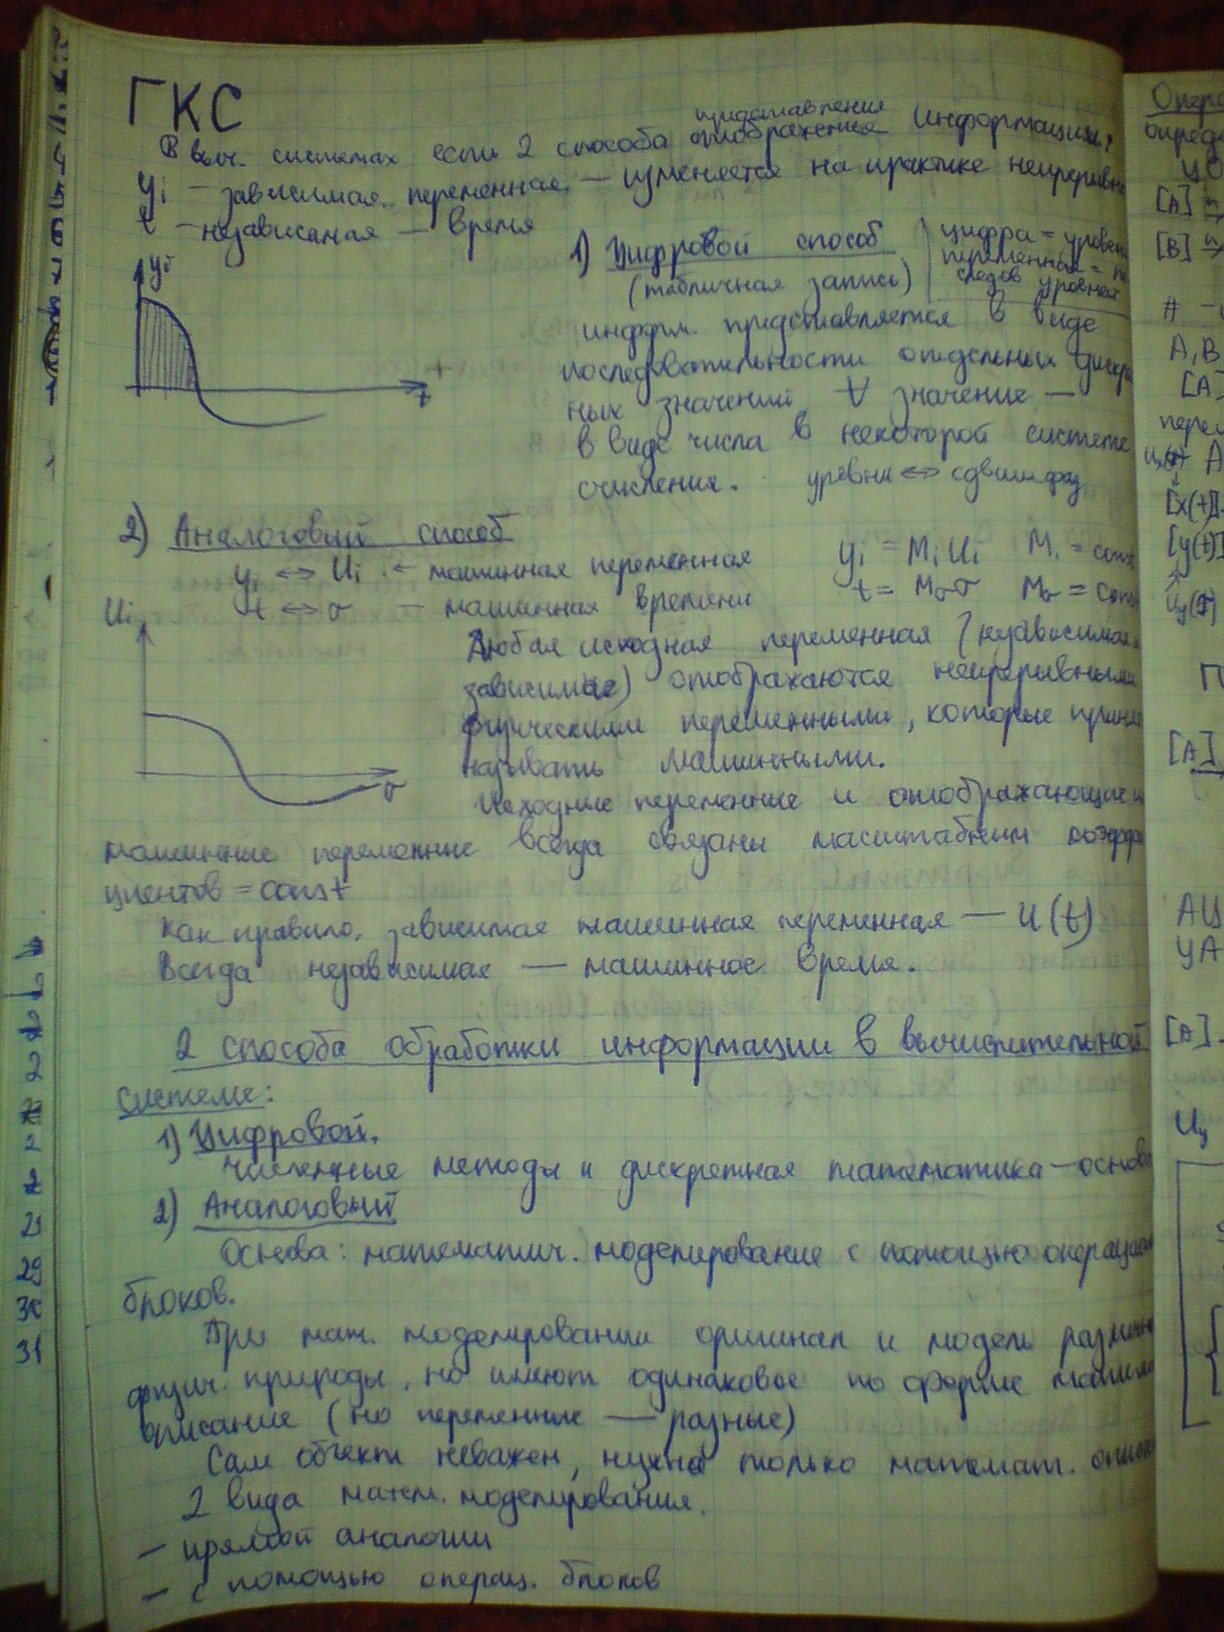 ГКС
В выч. системах есть 2 способа отображения информации:
представления
yi — зависимая переменная — изменяется на практике непрерывно
t — независимая — время
yi
t
1) Цифровой способ
(табличная запись)
цифра = уровень
переменная =
следов уровней
информ. представляется в виде
последовательности отдельных дискр
ных значений ∀ значение —
в виде числа в некоторой системе
счисления. уровни ⇔ сдвиги фаз
2) Аналоговый способ
yi ⇔ Ui ← машинная переменная
yi = Mi Ui Mi = const
t ⇔ σ — машинная времени
t = Mσσ Mσ = const
Ui
σ
Любая исходная переменная (независимая
зависимые) отображаются непрерывными
физическими переменными, которые приня
называть машинными.
Исходные переменные и отображающие и
машинные переменные всегда связаны масштабным коэффи
циентов = const
Как правило, зависимая машинная переменная — U(t)
Всегда независимая — машинное время.
2 способа обработки информации в вычислительной
системе:
1) Цифровой.
Численные методы и дискретная математика — основа
2) Аналоговый
Основа: математич. моделирование с помощью операцион
блоков.
При мат. моделировании оригинал и модель различн
физич. природы, но имеют одинаковое по форме матема
описание (но переменные — разные)
Сам объект неважен, нужно только математ. описан
2 вида матем. моделирования.
— прямой аналогии
— с помощью операц. блоков
29
30
31
Опера
опред
[A]
[B]
#
A, B
[A]
пере
[x(t)]
[y(t)]
[A]
АЦ
ЦА
[A]
Uy